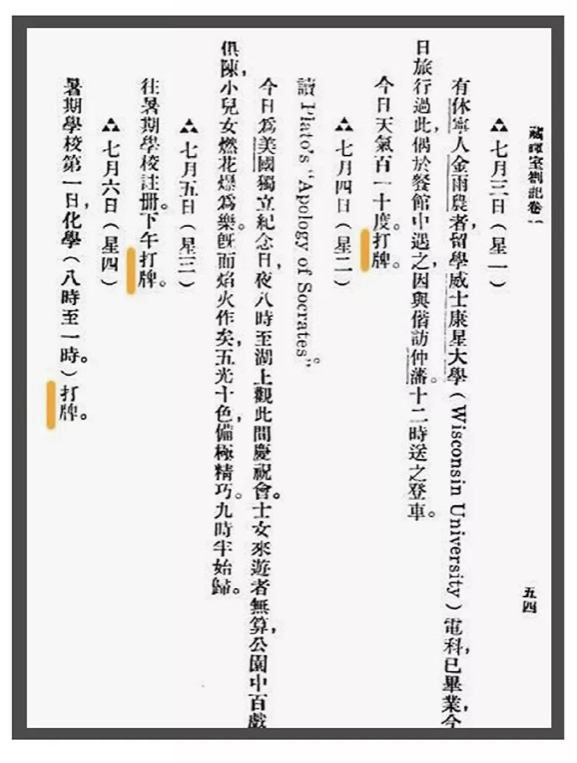 藏暉室劄記卷一
五四
七月三日(星一)
有休寧人金雨農者,留學威士康星大學(Wisconsin University)電科,已畢業,今
日旅行過此,偶於餐館中遇之,因與偕訪仲藩。十二時送之登車。
今日天氣百一十度。打牌。
七月四日(星二)
讀 Plato's "Apology of Socrates"。
今日爲美國獨立紀念日,夜八時至湖上觀此間慶祝會。士女來遊者無算,公園中百戲
俱陳,小兒女燃花爆爲樂。既而焰火作矣,五光十色,備極精巧。九時半始歸。
七月五日(星三)
往暑期學校註冊。下午打牌。
七月六日(星四)
暑期學校第一日,化學(八時至一時。)打牌。